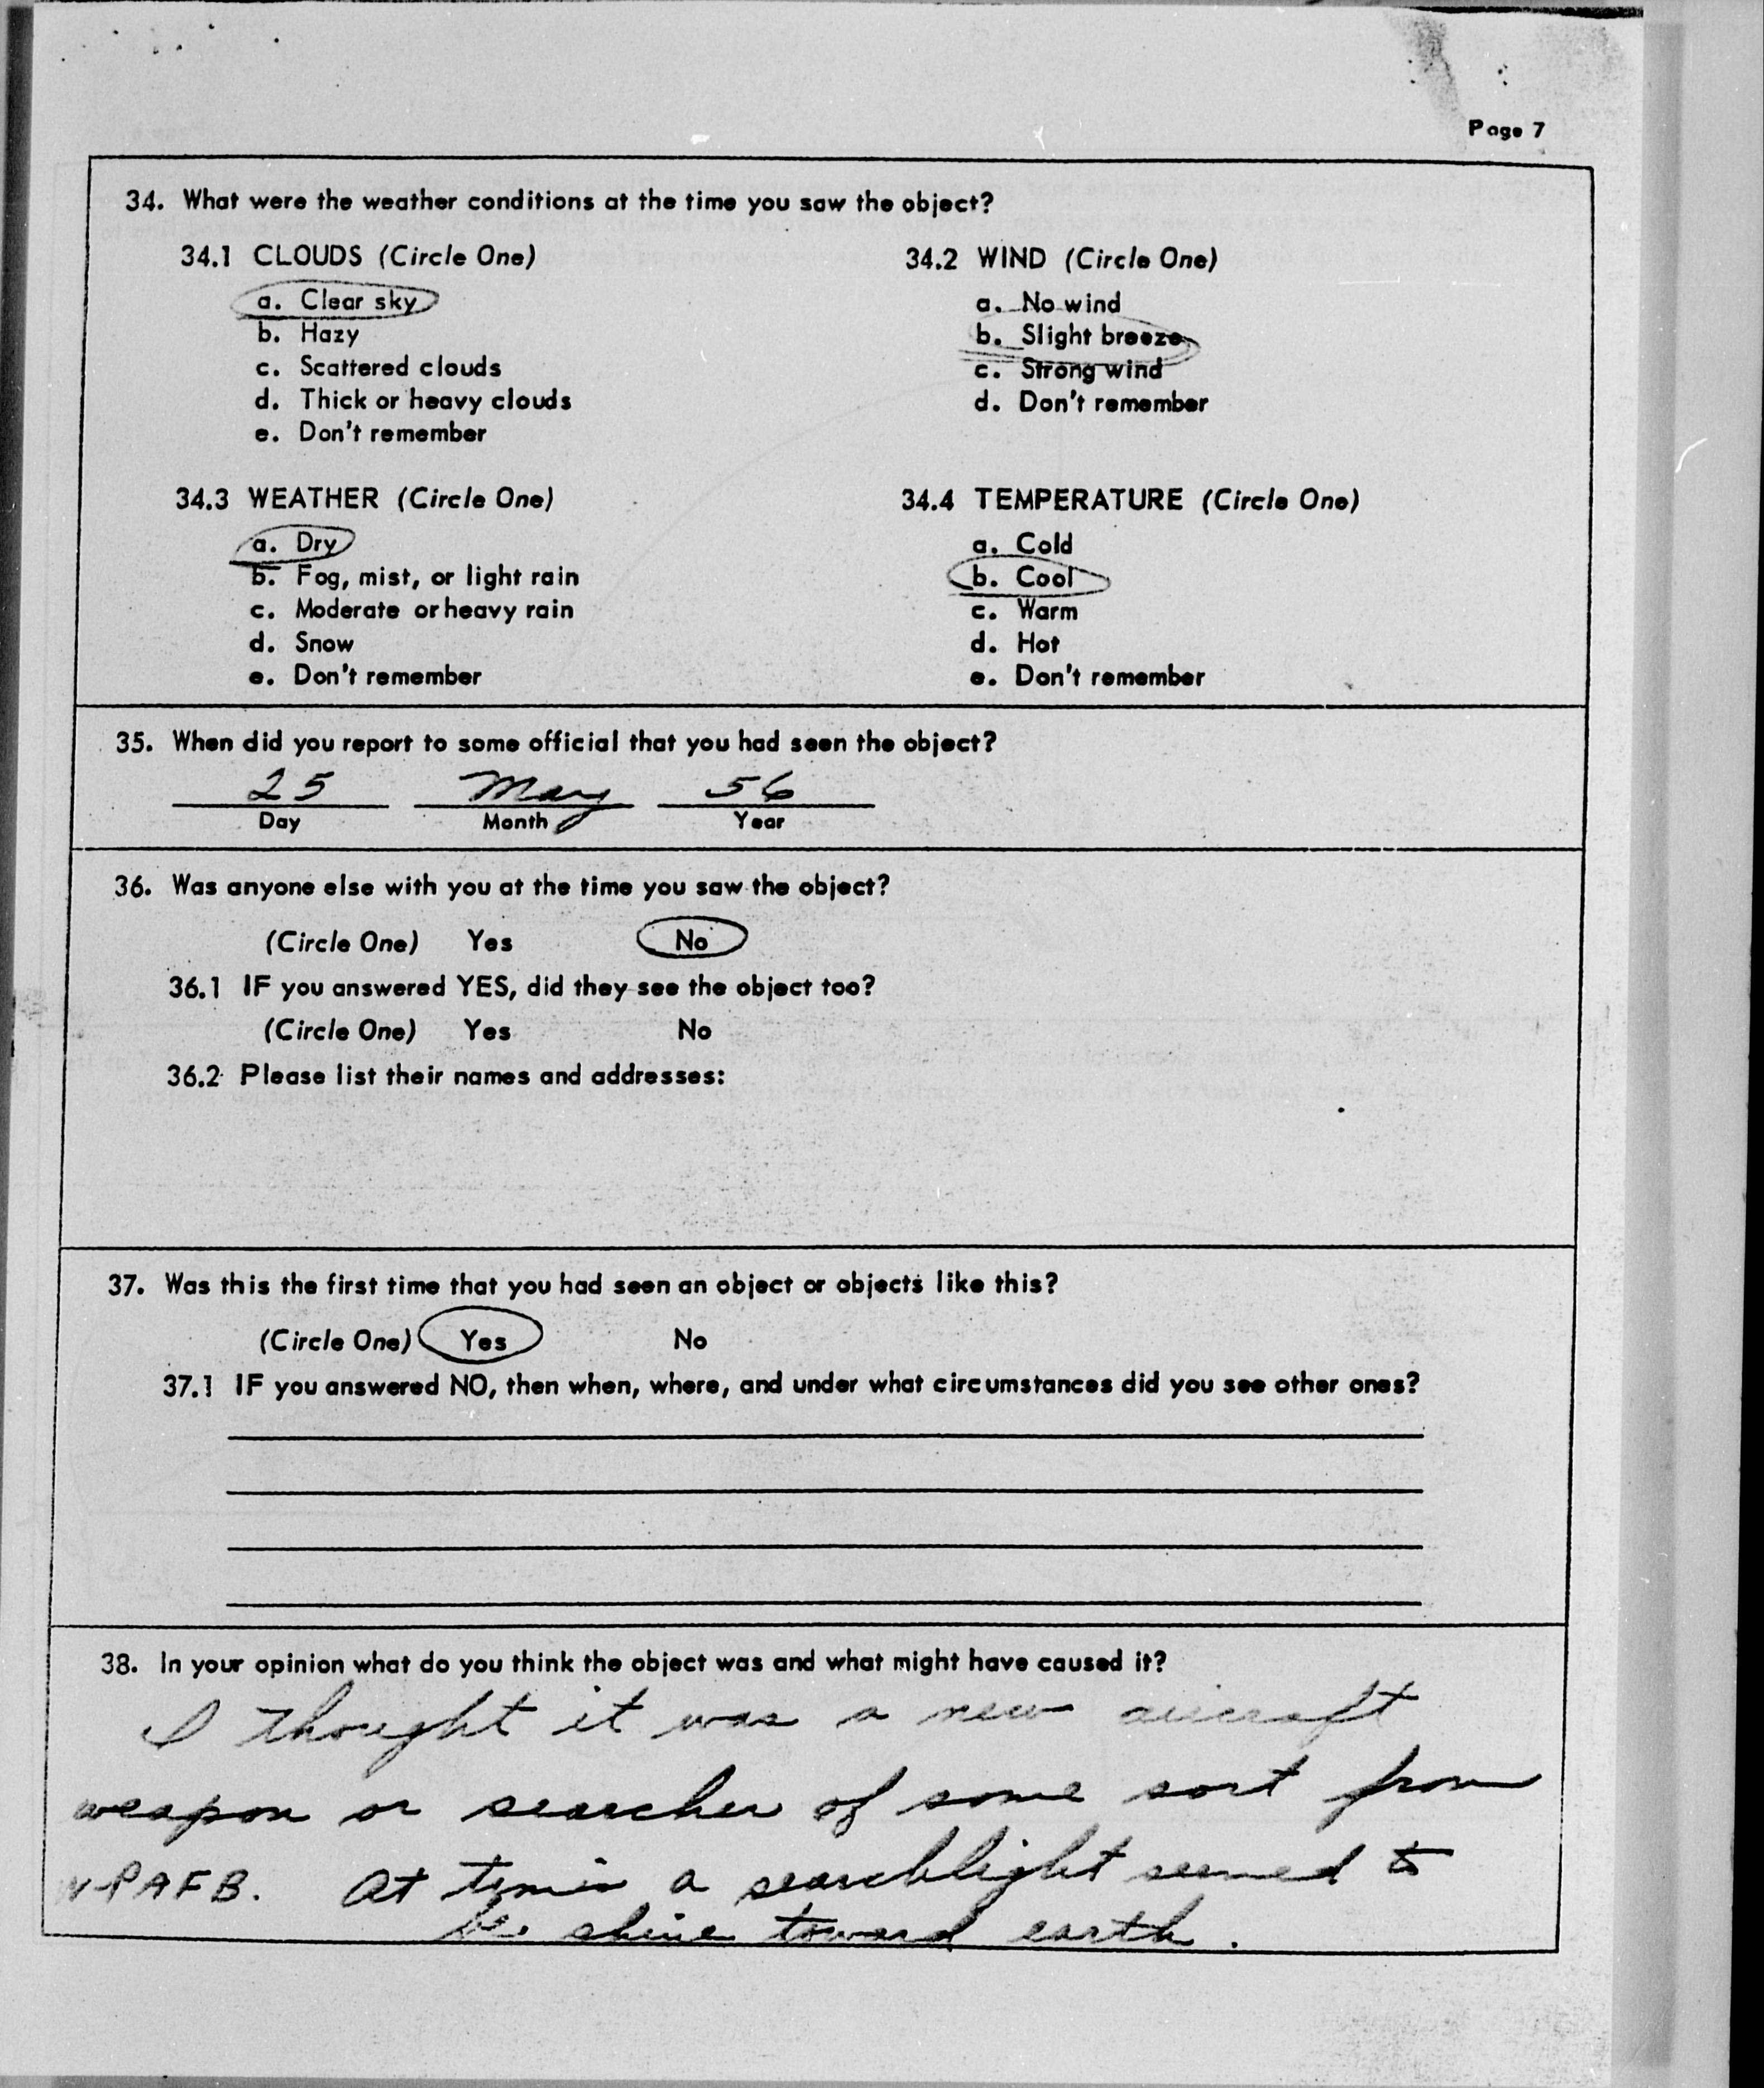 Page 7
34. What were the weather conditions at the time you saw the object?
34.1 CLOUDS (Circle One)
a. Clear sky
b. Hazy
c. Scattered clouds
d. Thick or heavy clouds
e. Don't remember
34.2 WIND (Circle One)
a. No wind
b. Slight breeze
c. Strong wind
d. Don't remember
34.3 WEATHER (Circle One)
a. Dry
b. Fog, mist, or light rain
c. Moderate or heavy rain
d. Snow
e. Don't remember
34.4 TEMPERATURE (Circle One)
a. Cold
b. Cool
c. Warm
d. Hot
e. Don't remember
35. When did you report to some official that you had seen the object?
25 May 56
Day Month Year
36. Was anyone else with you at the time you saw the object?
(Circle One) Yes No
36.1 IF you answered YES, did they see the object too?
(Circle One) Yes No
36.2 Please list their names and addresses:
37. Was this the first time that you had seen an object or objects like this?
(Circle One) Yes No
37.1 IF you answered NO, then when, where, and under what circumstances did you see other ones?
38. In your opinion what do you think the object was and what might have caused it?
I thought it was a new aircraft
weapon or searcher of some sort from
WPAFB. At times a searchlight seemed to
be shine toward earth.